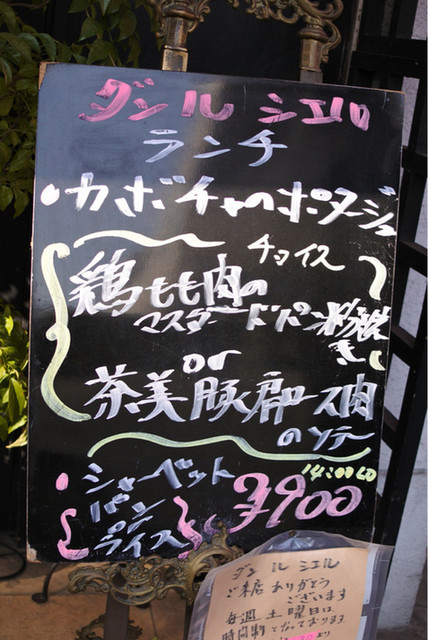 ダン ル シエル
ランチ
・カボチャのポタージュ
チョイス
鶏もも肉の
マスタードパン粉焼
き
or
茶美豚肩ロース肉
のソテー
・シャーベット
パン
ライス
14:00LO
¥900
ダン ル シエル
ご来店ありがとう
ございます
毎週土曜日は
時間制となっております
より